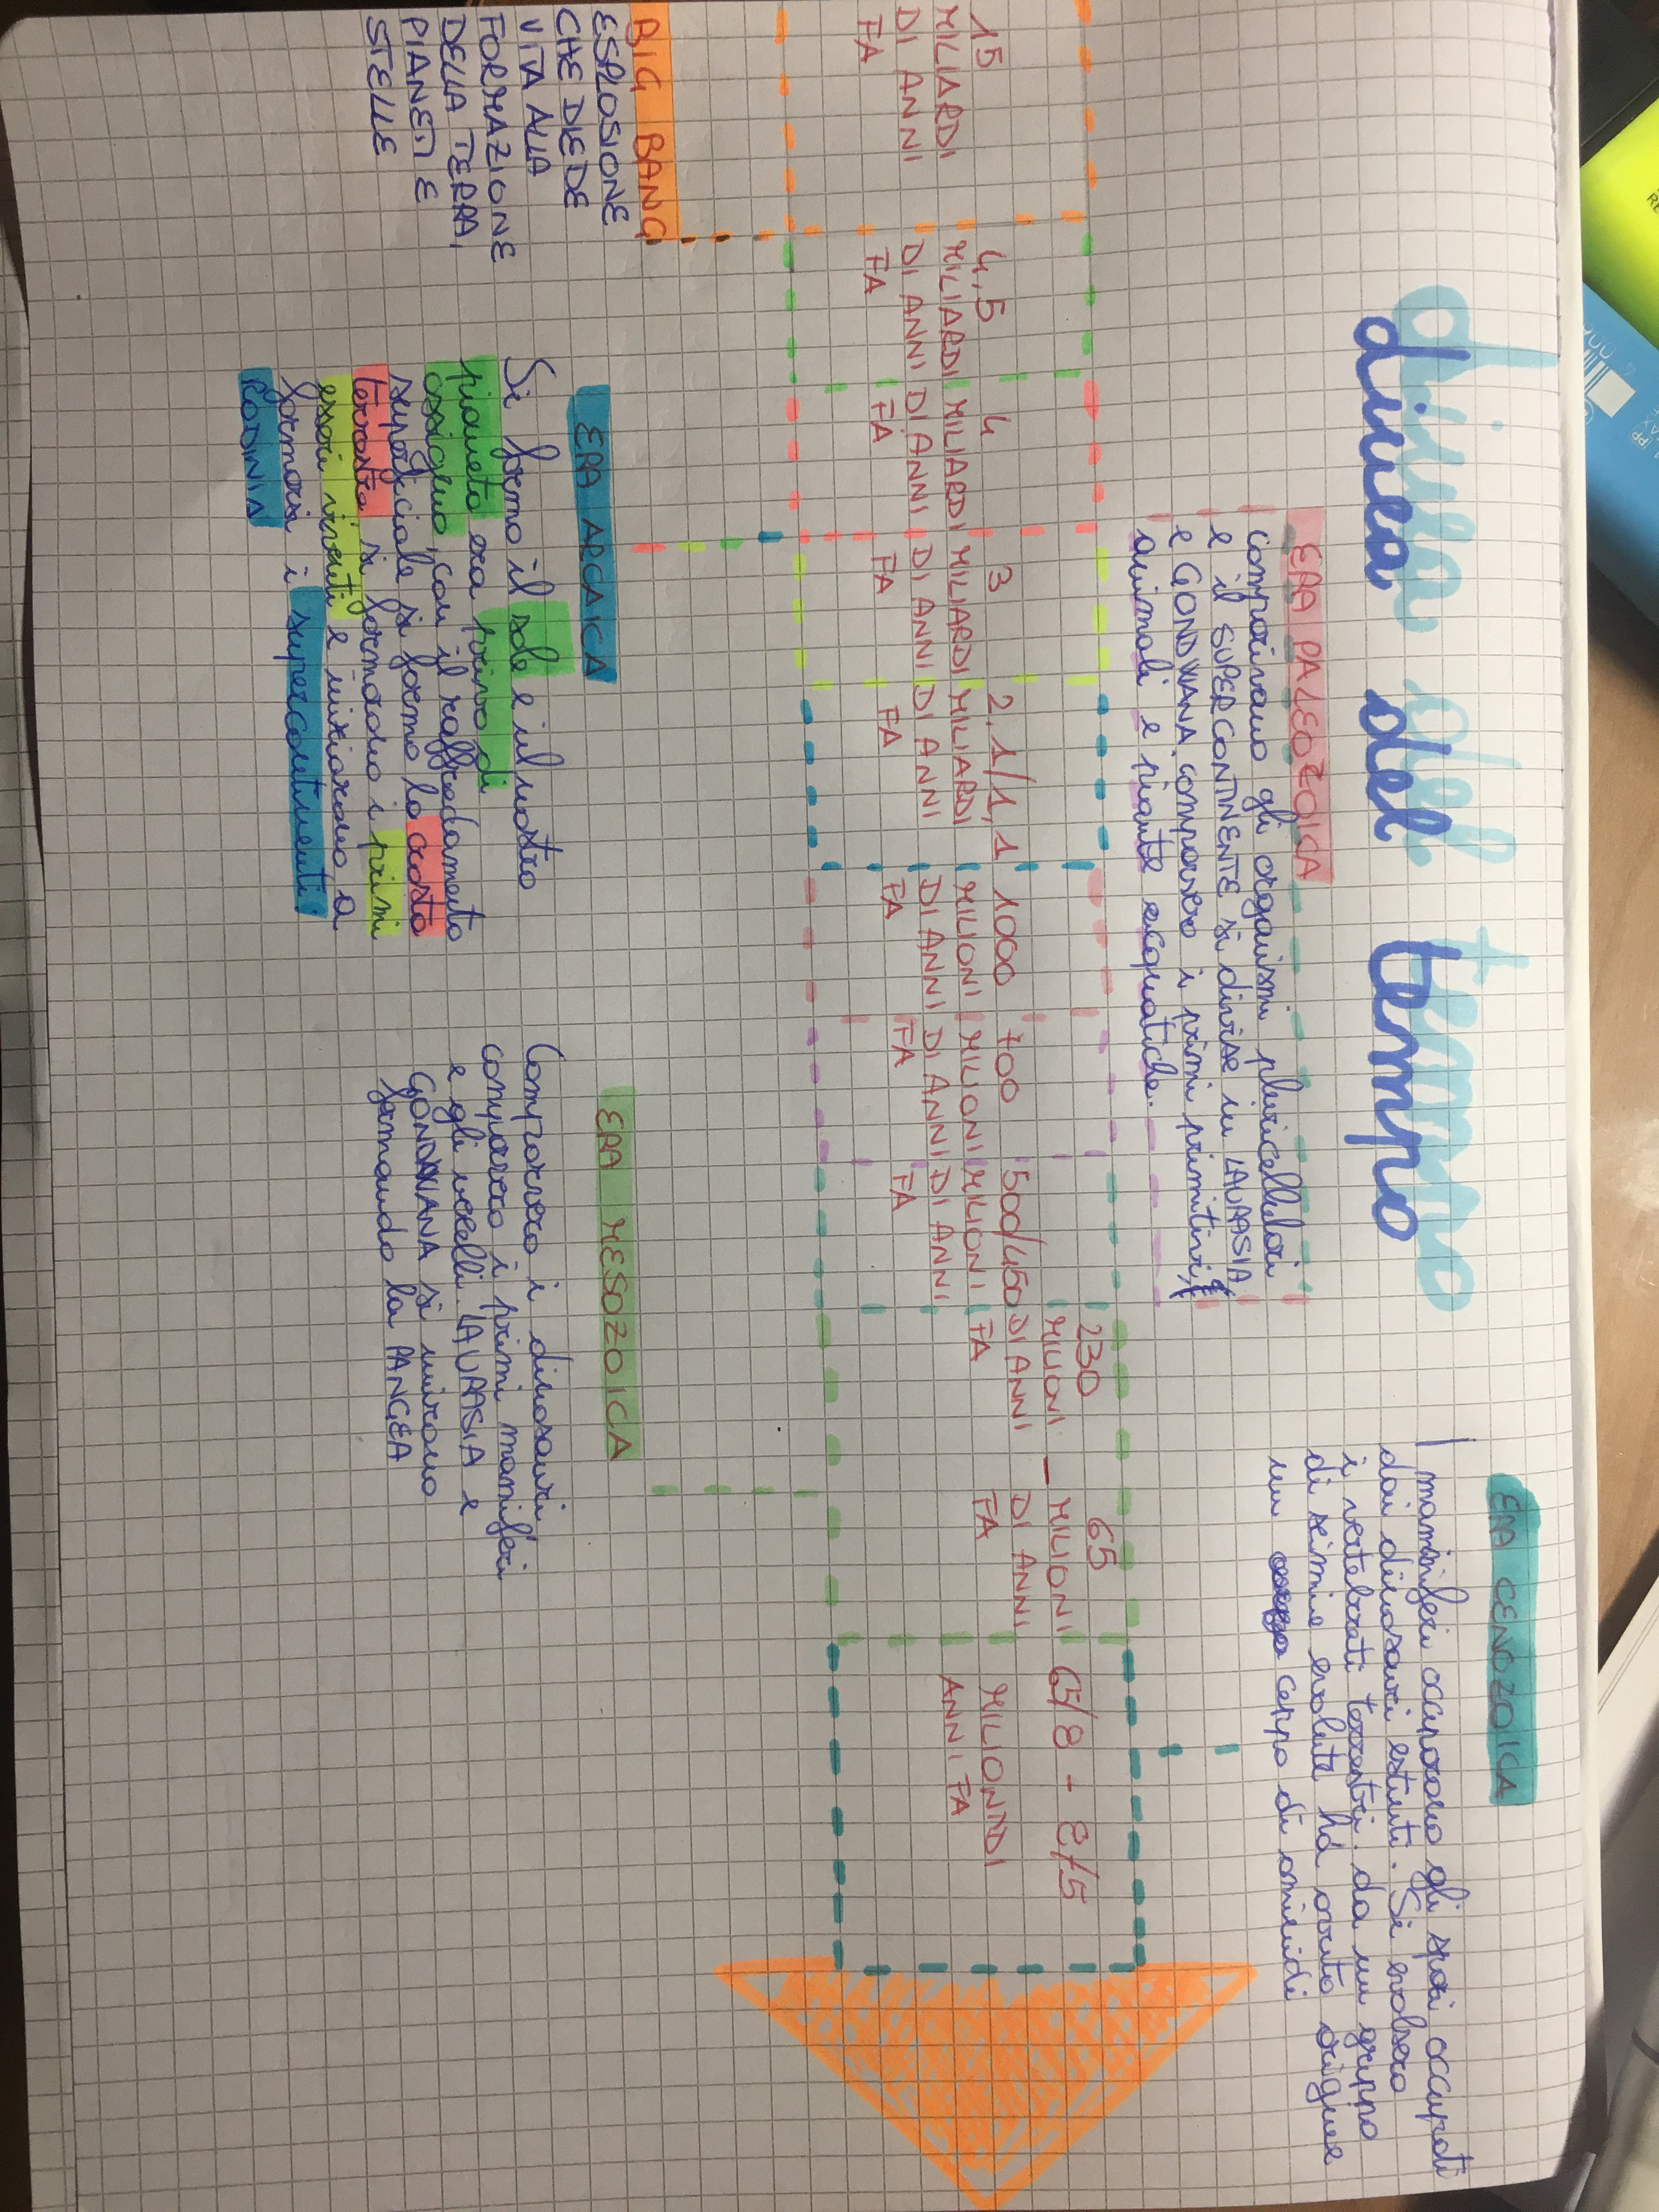 linea del tempo
ERA PALEOZOICA
comparirono gli organismi pluricellulari
e il SUPERCONTINENTE si divise in LAURASIA
e GONDWANA comparvero i primi primitivi
animali e piante acquatiche.
ERA CENOZOICA
I mammiferi occuparono gli spazi occupati
dai dinosauri estinti. Si evolsero
i vertebrati terrestri. da un gruppo
di scimmie evolute ha avuto origine
un ceppo di ominidi
15
MILIARDI
DI ANNI
FA
4,5
MILIARDI
DI ANNI
FA
4
MILIARDI
DI ANNI
FA
3
MILIARDI
DI ANNI
FA
2,1/1,1
MILIARDI
DI ANNI
FA
1000
MILIONI
DI ANNI
FA
700
MILIONI
DI ANNI
FA
500/450
MILIONI
DI ANNI
FA
230
MILIONI
DI ANNI
FA
—
65
MILIONI
DI ANNI
FA
65/8 - 8/5
MILIONI DI
ANNI FA
BIG BANG
ESPLOSIONE
CHE DIEDE
VITA ALLA
FORMAZIONE
DELLA TERRA,
PIANETI E
STELLE
ERA ARCAICA
Si formò il sole e il nostro
pianeta era privo di
ossigeno, con il raffreddamento
superficiale si formò la crosta
terrestre si formarono i primi
esseri viventi e iniziarono a
formarsi i supercontinenti:
RODINIA
ERA MESOZOICA
Comparvero i dinosauri,
comparvero i primi mammiferi
e gli uccelli. LAURASIA e
GONDWANA si unirono
formando la PANGEA